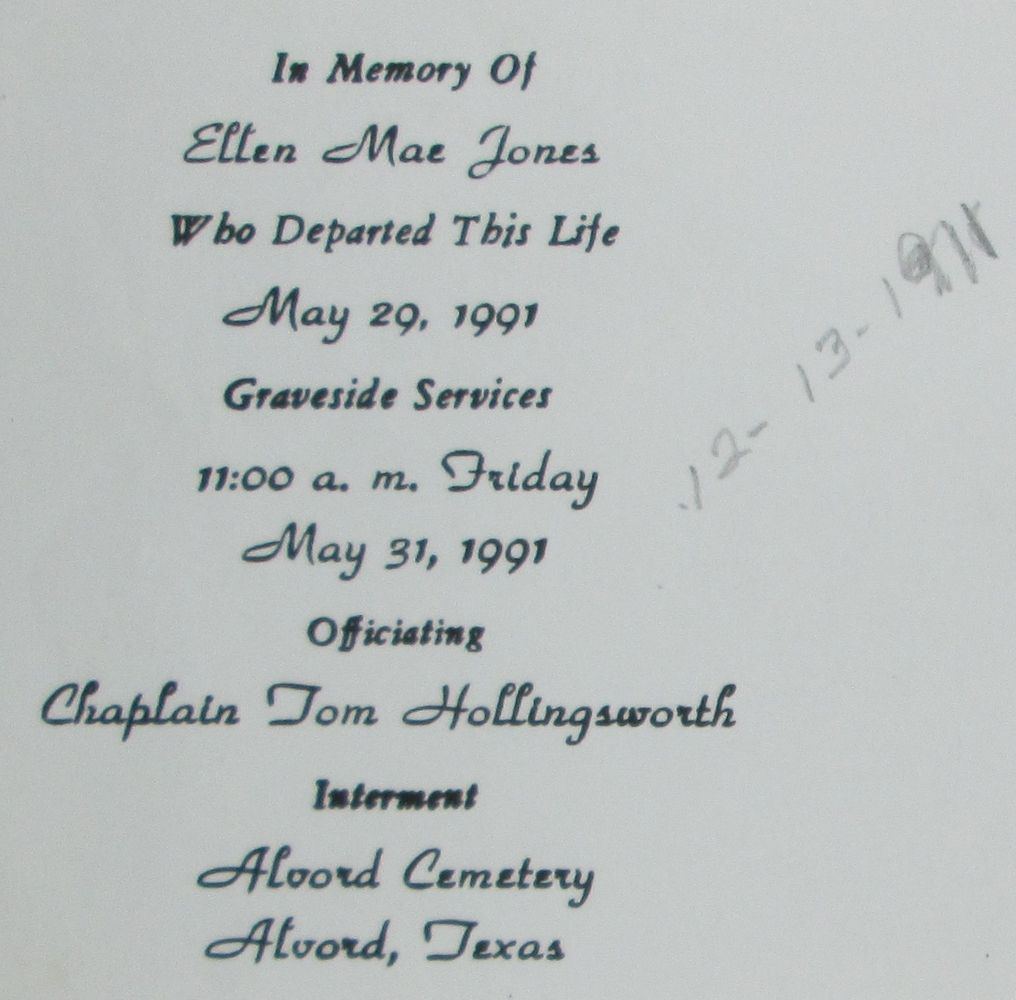 In Memory Of
Ellen Mae Jones
Who Departed This Life
May 29, 1991
Graveside Services
11:00 a. m. Friday
May 31, 1991
Officiating
Chaplain Tom Hollingsworth
Interment
Alvord Cemetery
Alvord, Texas
12-13-